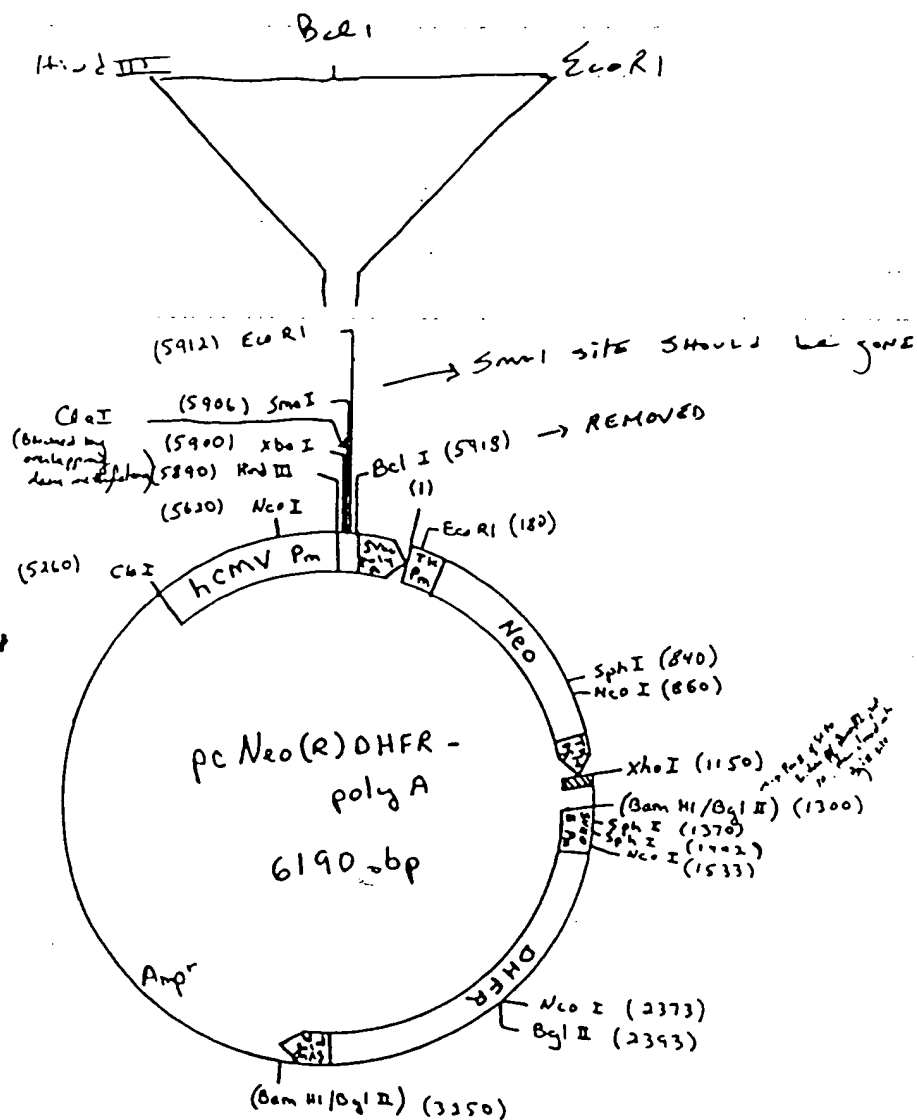 Bcl 1
Hind III
EcoR1
(5912) EcoR1
→ SmaI site SHOULD be gonE
(5906) SmaI
ClaI
(5900) XbaI
(Blocked by
overlapping
dam methylation)
(5890) Hind III
Bcl I (5918) → REMOVED
(5620) NcoI
(1)
EcoR1 (180)
(5260) ClaI
hCMV Pm
TK
Pm
Neo
SphI (840)
NcoI (860)
XhoI (1150)
(Bam H1/Bgl II) (1300)
SphI (1370)
SphI (1442)
NcoI (1533)
pc Neo(R) DHFR -
poly A
6190 bp
DHFR
NcoI (2373)
Bgl II (2393)
Ampr
(Bam H1/Bgl II) (3250)